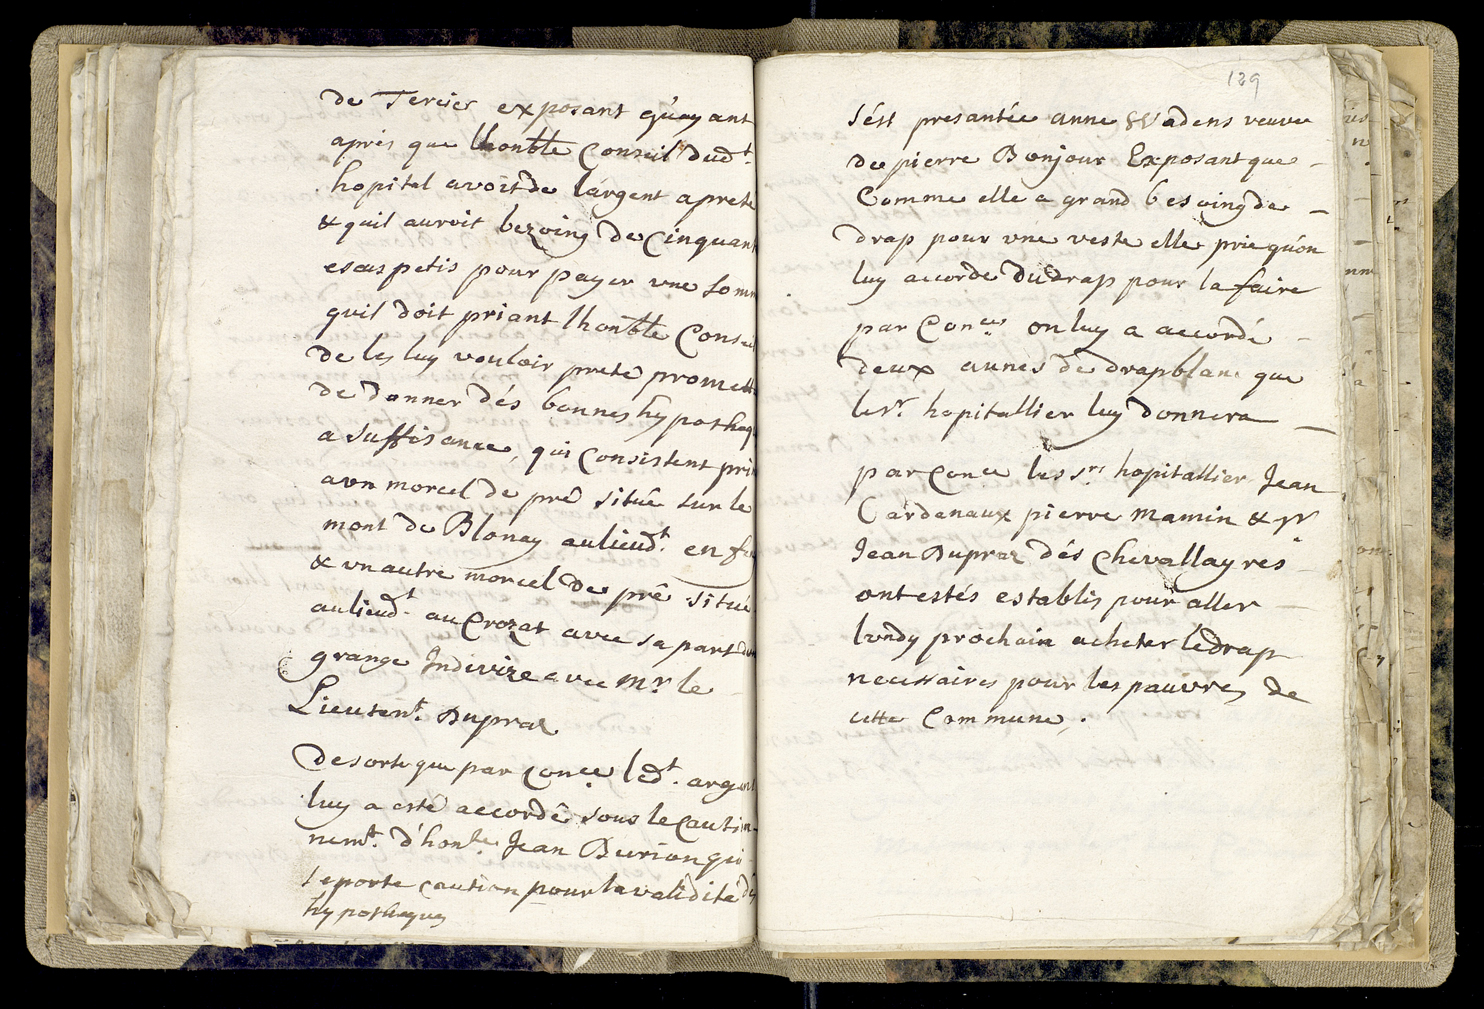 de Tercier exposant qu'ayant
apris que lhonble Conseil dudt.
hopital avoit de largent a prete
& quil auroit bezoing de Cinquan
escus petis pour payer une som
quil doit priant lhonble Conse
de les luy vouloir prete promett
de donner dés bonnes hypotheq
a suffisance, qui Consistent pri
a un morcel de prê situê sur le
mont de Blonay au lieudt. en
& un autre morcel de prê situé
au lieudt. au Crozat avec sa part
grange Indivize avec Mr. le
Lieutent. Dupraz
De sorte que par Conce. ledt. argent
luy a esté accordê sous le Caution
nemt. d'honle Jean Derion qui
se porte caution pour la validite
hypotheques
139
sést presantée anne Wadens veuve
de pierre Bonjour Exposant que
Comme elle a grand besoing de
drap pour une veste elle prie qu'on
luy accorde du drap pour la faire
par Conce. on luy a accordé
deux aunes de drap blanc que
le sr. hopitallier luy donnera
par Conce les srs. hopitallier Jean
Cardenaux pierre Mamin & Jr
Jean Dupraz dés Chevallayres
ont estés establis pour aller
lundy prochain acheter le drap
necessaires pour les pauvres de
cette Commune.